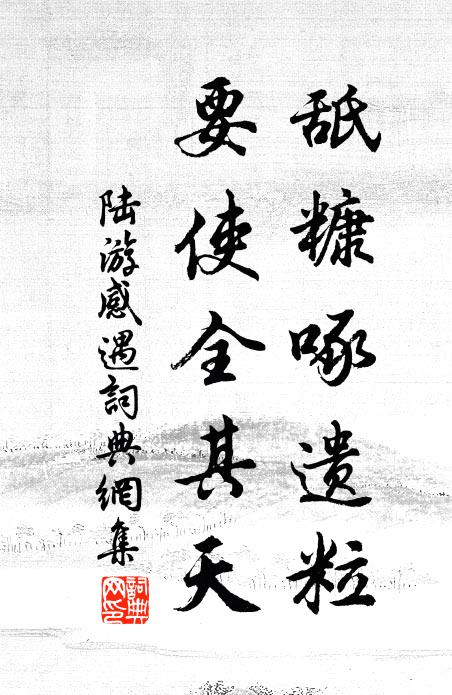 舐糠啄遗粒
要使全其天
陆游感遇詞典網集
詞典网印